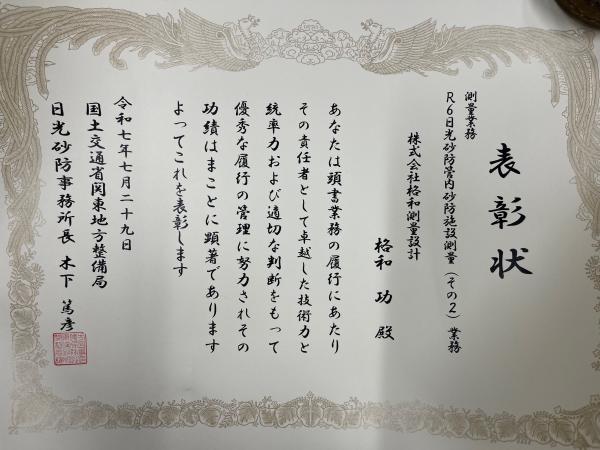 表彰状
測量業務
R6日光砂防管内砂防施設測量(その2)業務
株式会社格和測量設計
格和 功 殿
あなたは頭書業務の履行にあたり
その責任者として卓越した技術力と
統率力および適切な判断をもって
優秀な履行の管理に努力されその
功績はまことに顕著であります
よってこれを表彰します
令和七年七月二十九日
国土交通省関東地方整備局
日光砂防事務所長 木下 篤彦